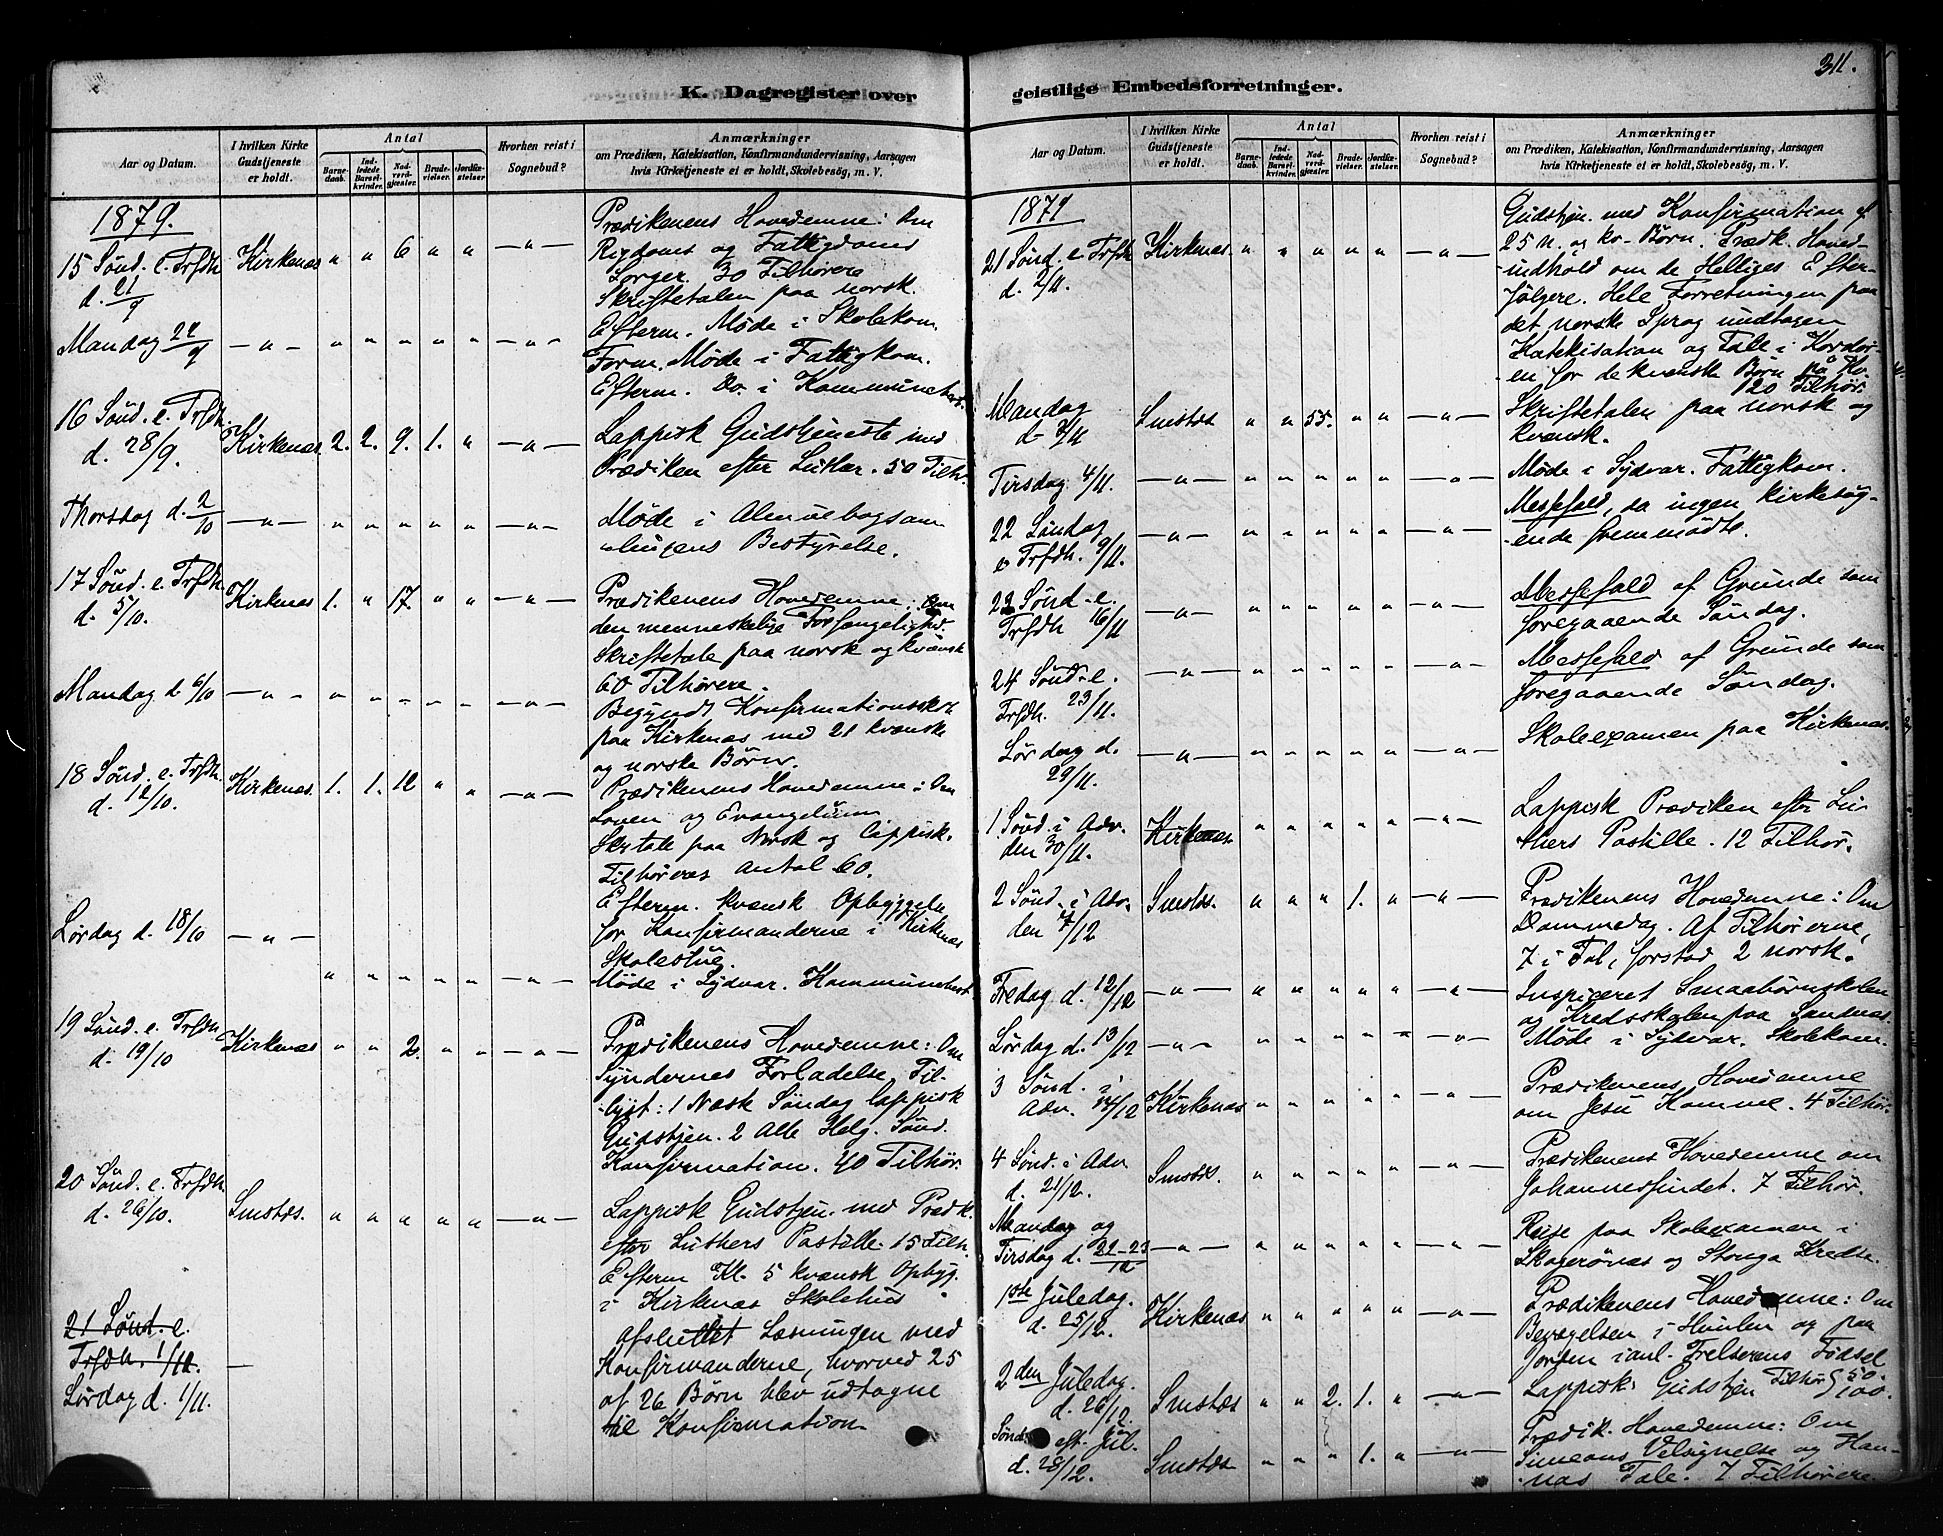 311.
K. Dagregister over
Aar og Datum.
I hvilken Kirke Gudstjeneste er holdt.
Antal
Barnedaab.
Indledede Barselkvinder.
Nadverdgjæster.
Brudevielser.
Jordfæstelser.
Hvorhen reist i Sognebud?
Anmærkninger
om Prædiken, Katekisation, Konfirmandundervisning, Aarsagen
hvis Kirketjeneste ei er holdt, Skolebesög, m. V.
1879.
15 Sønd. e. Trfdh d. 21/9 Kirkenæs " " 6 " " — " —
Prædikenens Hovedemne: Om
Rigdoms og Fattigdoms
Sorger. 30 Tilhørere
Skriftetalen paa norsk.
Efterm. Møde i Skolekom.
Mandag 22/9 — " — " " " " " — " —
Form. Møde i Fattigkom.
Efterm. Do. i Kommunebest.
16 Sønd. e. Trfdh. d. 28/9. Kirkenæs 2. 2. 9. 1. " — " —
Lappisk Gudstjeneste med
Prædiken efter Luther. 50 Tilh.
Thorsdag d. 2/10 — " — " " " " " — " —
Møde i Almuebogsam
lingens Bestyrelse.
17 Sønd. e. Trfdh d. 5/10. Kirkenæs 1. " 17. " " — " —
Prædikenens Hovedemne: Om
den menneskelige Forfængelighed.
Skriftetale paa norsk og kvænsk
60 Tilhørere.
Mandag d 6/10 — " — " " " " " — " —
Begyndt Konfirmationssk.
paa Kirkenæs med 21 kvænske
og norske Børn.
18 Sønd. e. Trfdh. d. 12/10. Kirkenæs. 1. 1. 12 " " — " —
Prædikenens Hovedemne: Om
Loven og Evangelium
Skrtale paa Norsk og Lappisk.
Tilhøreres Antal 60.
Efterm. kvænsk Opbyggelse
for Konfirmanderne i Kirkenæs
Skolestue.
Lørdag d. 18/10 — " — " " " " " — " —
Møde i Sydvar. Kommunebest
19 Sønd. e. Trfdh d. 19/10 Kirkenæs " " 2. " " — " —
Prædikenens Hovedemne: Om
Syndernes Forladelse. Til-
lyst: 1 Næsk Søndag lappisk
Gudstjen. 2 Alle Helg. Sønd.
Konfirmation. 40 Tilhør.
20 Sønd. e. Trfdh d. 26/10. Smstds. " " " " " — " —
Lappisk Gudstjen. med Prædk.
efter Luthers Postille. 15 Tilh.
Efterm Kl. 5 kvænsk Opbyg.
i Kirkenæs Skolehus
21 Sønd. e.
Trfdh. 1/12. —
Lørdag d. 1/11.
Afsluttet Læsningen med
Konfirmanderne, hvorved 25
af 26 Børn blev udtagne
til Konfirmation
geistlige Embedsforretninger.
Aar og Datum.
I hvilken Kirke Gudstjeneste er holdt.
Antal
Barnedaab.
Indledede Barselkvinder.
Nadverdgjæster.
Brudevielser.
Jordfæstelser.
Hvorhen reist i Sognebud?
Anmærkninger
om Prædiken, Katekisation, Konfirmandundervisning, Aarsagen
hvis Kirketjeneste ei er holdt, Skolebesög, m. V.
1879
21 Sønd. e Trfdh d. 2/11. Kirkenæs. " " " " " — " —
Gudstjen. med Konfirmation af
25 N. og kv- Børn. Prædk. Hoved-
indhold om de Helliges Efter-
følgere. Hele Forretningen paa
det norske Sprog undtagen
Katekisation og Tale i Kordør-
en for de kvænske Børn på Kv.
120 Tilhør.
Mandag d- 3/11 Smstds " " 55. " " — " —
Skriftetalen paa norsk og
kvænsk.
Tirsdag 4/11. — " — " " " " " — " —
Møde i Sydvar. Fattigkom.
22 Søndag e Trfdh. 9/11. — " — " " " " " — " —
Messefald, da ingen Kirkesøg-
ende fremmødte.
23 Sønd. e. Trfdh 16/11 — " — " " " " " — " —
Messefald af Grunde som
foregaaende Søndag.
24 Sønd. e. Trfdh. 23/11. — " — " " " " " — " —
Messefald af Grunde som
foregaaende Søndag.
Lørdag d. 29/11. — " — " " " " " — " —
Skoleexamen paa Kirkenæs.
1 Sønd. i Adv. den 30/11. Kirkenæs. " " " " " — " —
Lappisk Prædiken efter Lu-
thers Postille. 12 Tilhør.
2 Sønd. i Adv. den 7/12 Smstds. " " " 1. " — " —
Prædikenens Hovedemne: Om
Dommedag. Af Tilhørerne,
7 i Tal, forstod 2 norsk.
Fredag d. 12/12 — " — " " " " " — " —
Inspiceret Smaabørnskolen
og Kredsskolen paa Sandnæs.
Lørdag d. 13/12 — " — " " " " " — " —
Møde i Sydvar. Skolekom.
3 Sønd. i Adv. 14/12 Kirkenæs " " " " " — " —
Prædikenens Hovedemne
om Jesu Komme. 4 Tilhør.
4 Sønd. i Adv d. 21/12. Smstds. " " " " " — " —
Prædikenens Hovedemne om
Johannesfindet. 7 Tilhør.
Mandag og Tirsdag d. 21-23/12 — " — " " " " " — " —
Reise paa Skoleexamen i
Skagerønæs og Stonga Kredse.
1ste Juledag. d. 25/12. Kirkenæs " " " " " — " —
Prædikenens Hovedemne: Om
Bevægelsen i Himlen og paa
Jorden i anl. Frelserens Fødsel
Tilhør 50.
2den Juledag. d. 26/12. Smstds " " 2. 1. " — " —
Lappisk Gudstjen 100.
Sønd. eft. Jul. d. 28/12. Smstds " " " 1. " — " —
Prædik. Hovedemne: Om
Simeons Velsignelse og Han-
nas Tale. 7 Tilhørere.